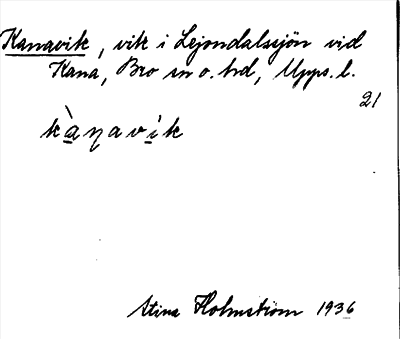 Kanavik, vik i Lejondalssjön vid
Kana, Bro sn o. hd, Upps. l.
21
kàṉavi̱k
Stina Holmström 1936